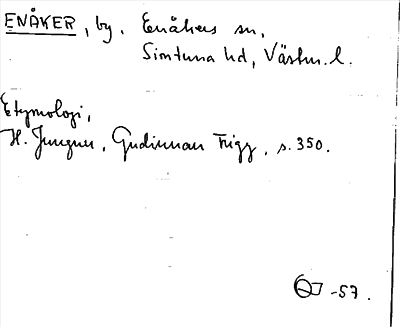 ENÅKER, by. Enåkers sn,
Simtuna hd, Västm. l.
Etymologi,
H. Jungner, Gudinnan Frigg, s. 350.
-57.